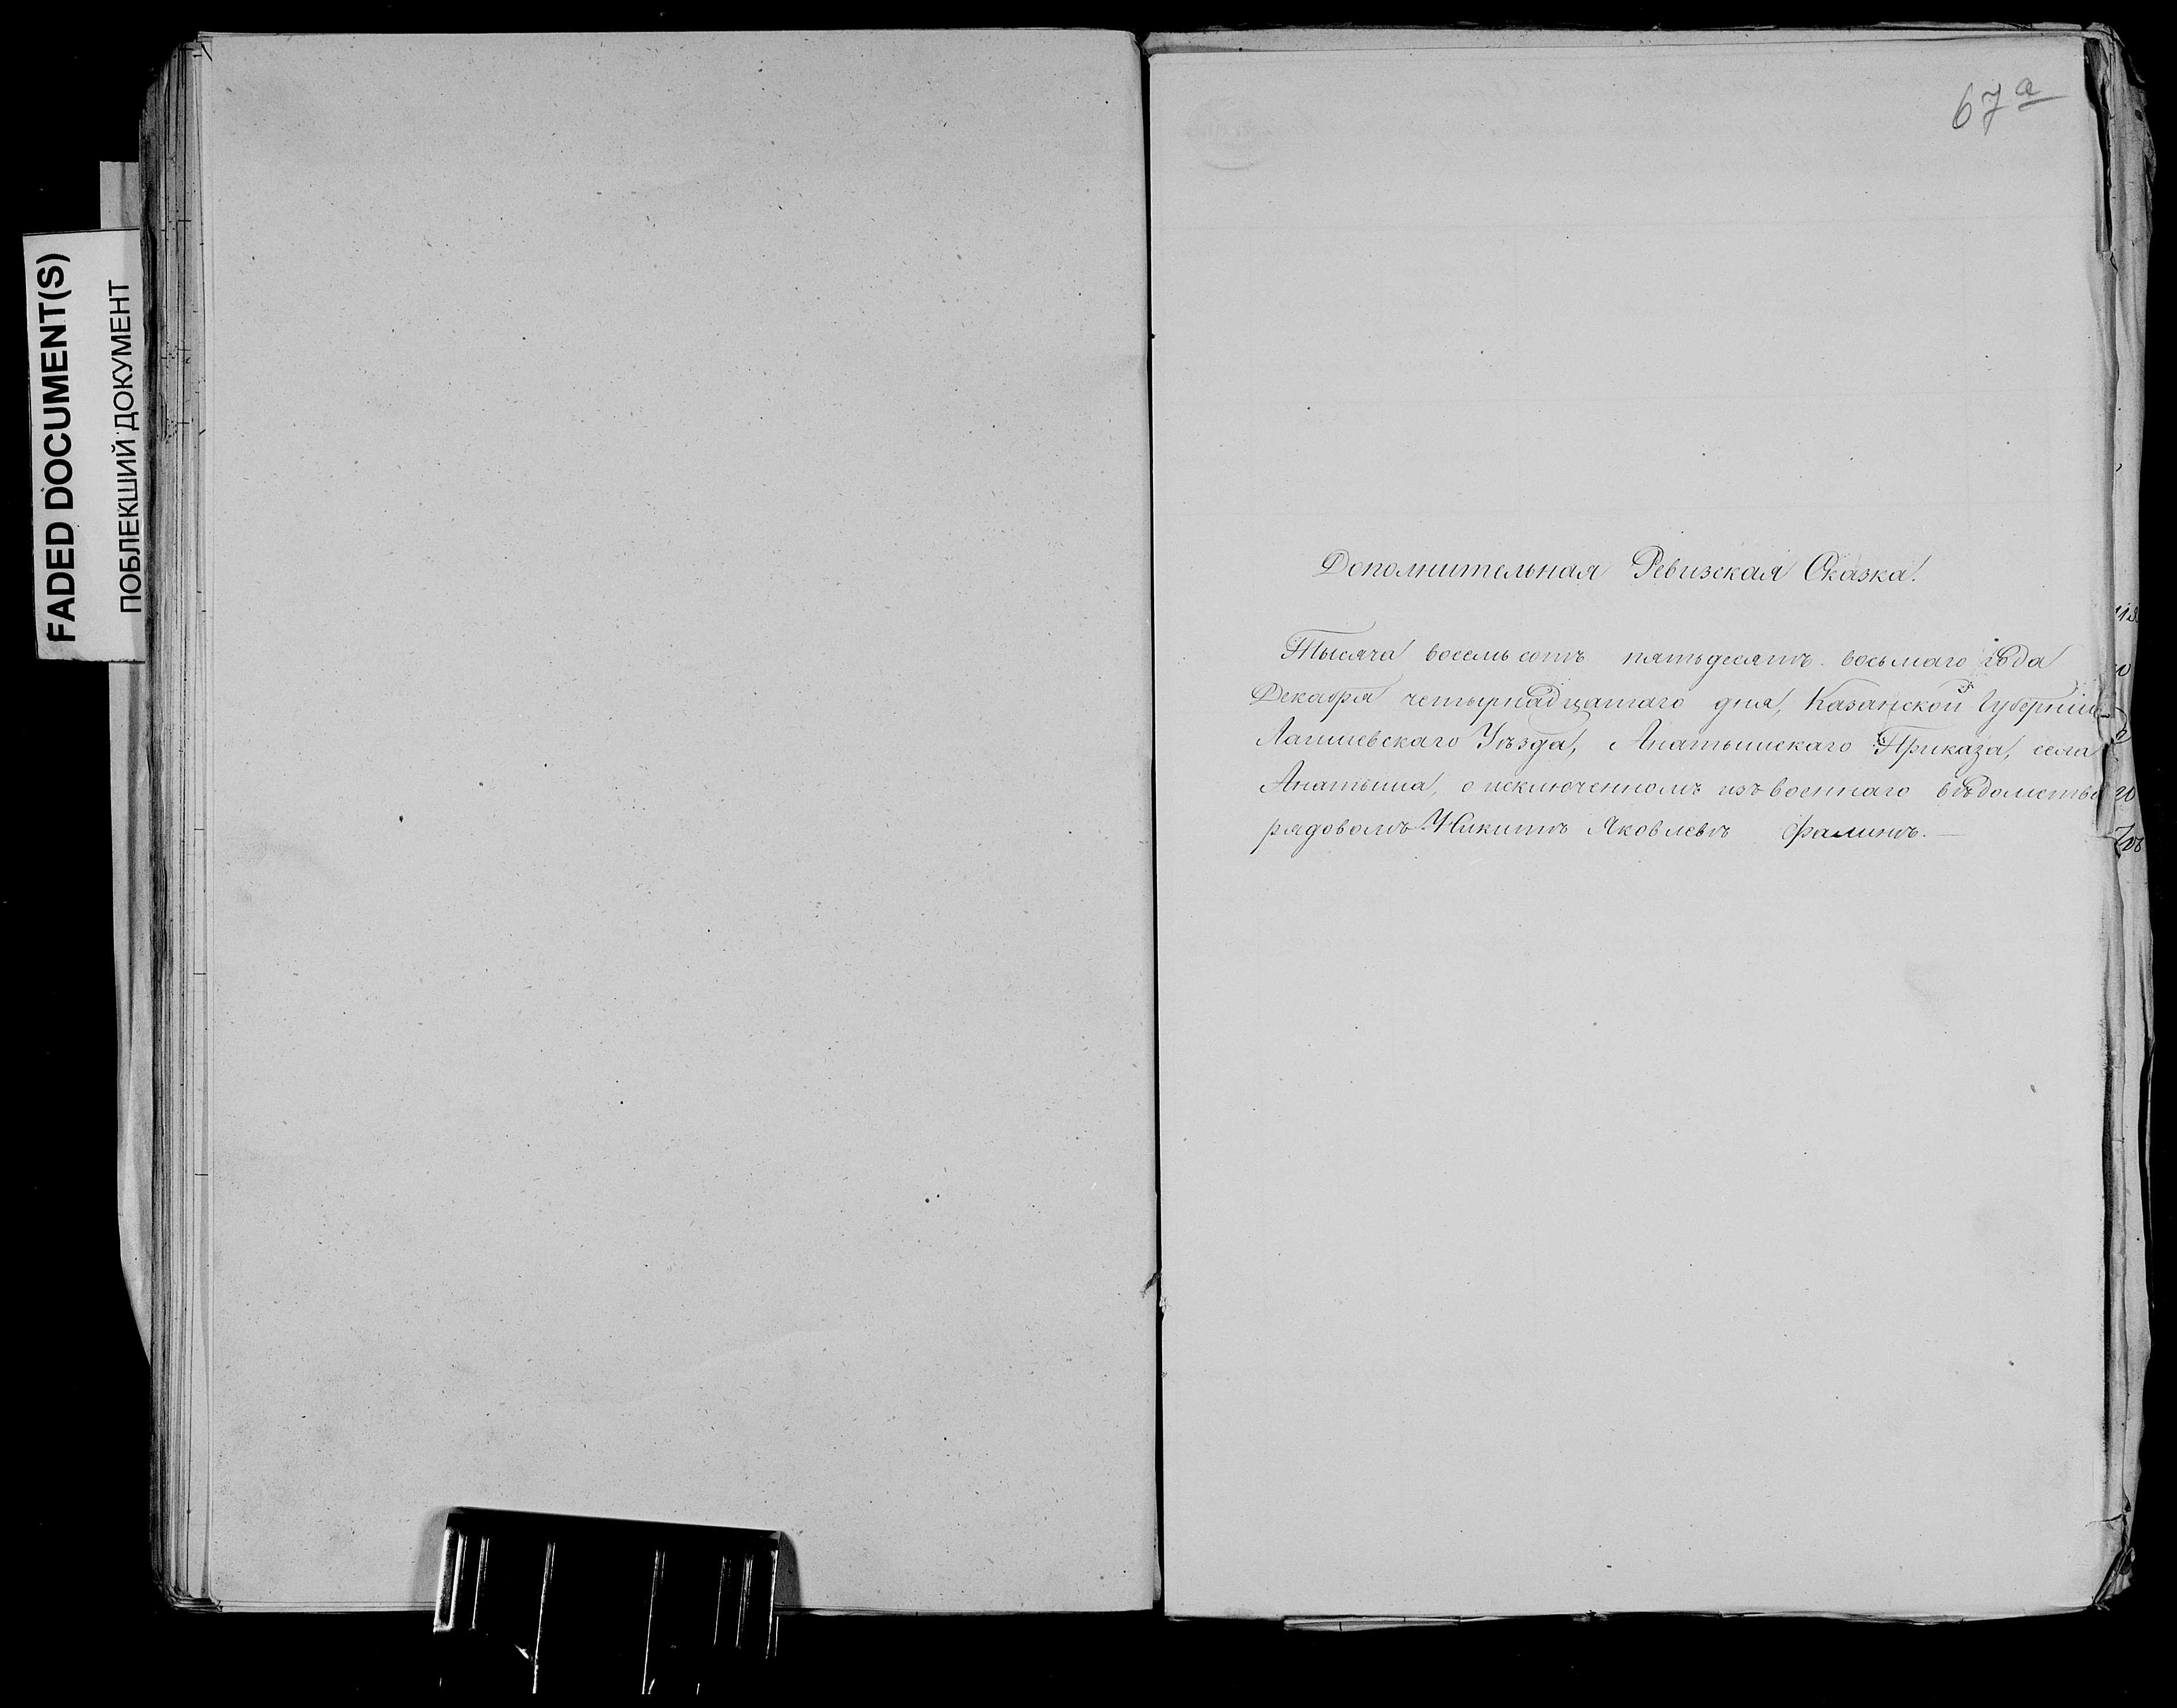 FADED DOCUMENT(S)
ПОБЛЕКШИЙ ДОКУМЕНТ
67а
Дополнительная Ревизская Сказка.
Тысяча восемь сотъ пятьдесятъ восьмаго года
Декабря четырнадцатаго дня, Казанской Губерніи
Лаишевскаго Уѣзда, Анатышскаго Приказа, села
Анатыша, о исключенномъ изъ военнаго вѣдомства
рядовомъ Никитѣ Яковлевѣ Фалинѣ.